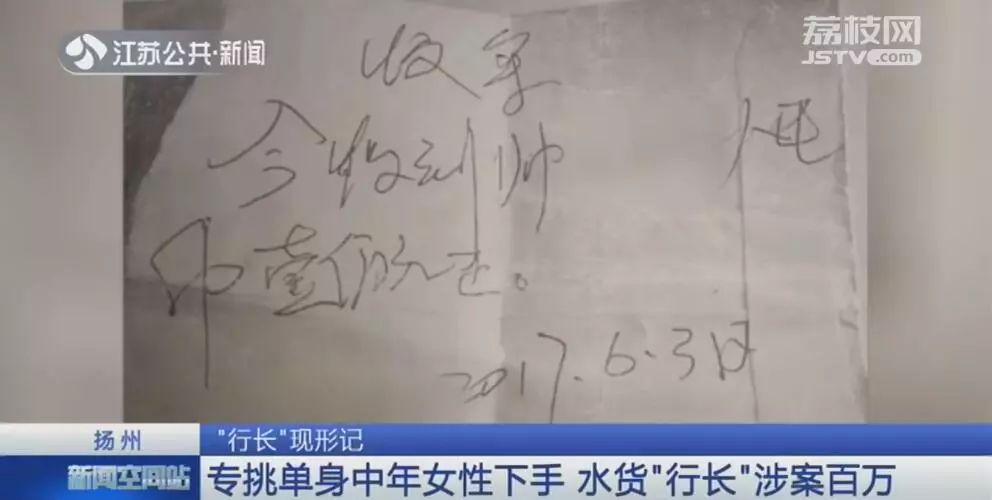 江苏公共·新闻
荔枝网
JSTV.com
收
今收到帅 人民
币壹佰
2017.6.3日
扬州
"行长"现形记
新闻空间站
专挑单身中年女性下手 水货"行长"涉案百万